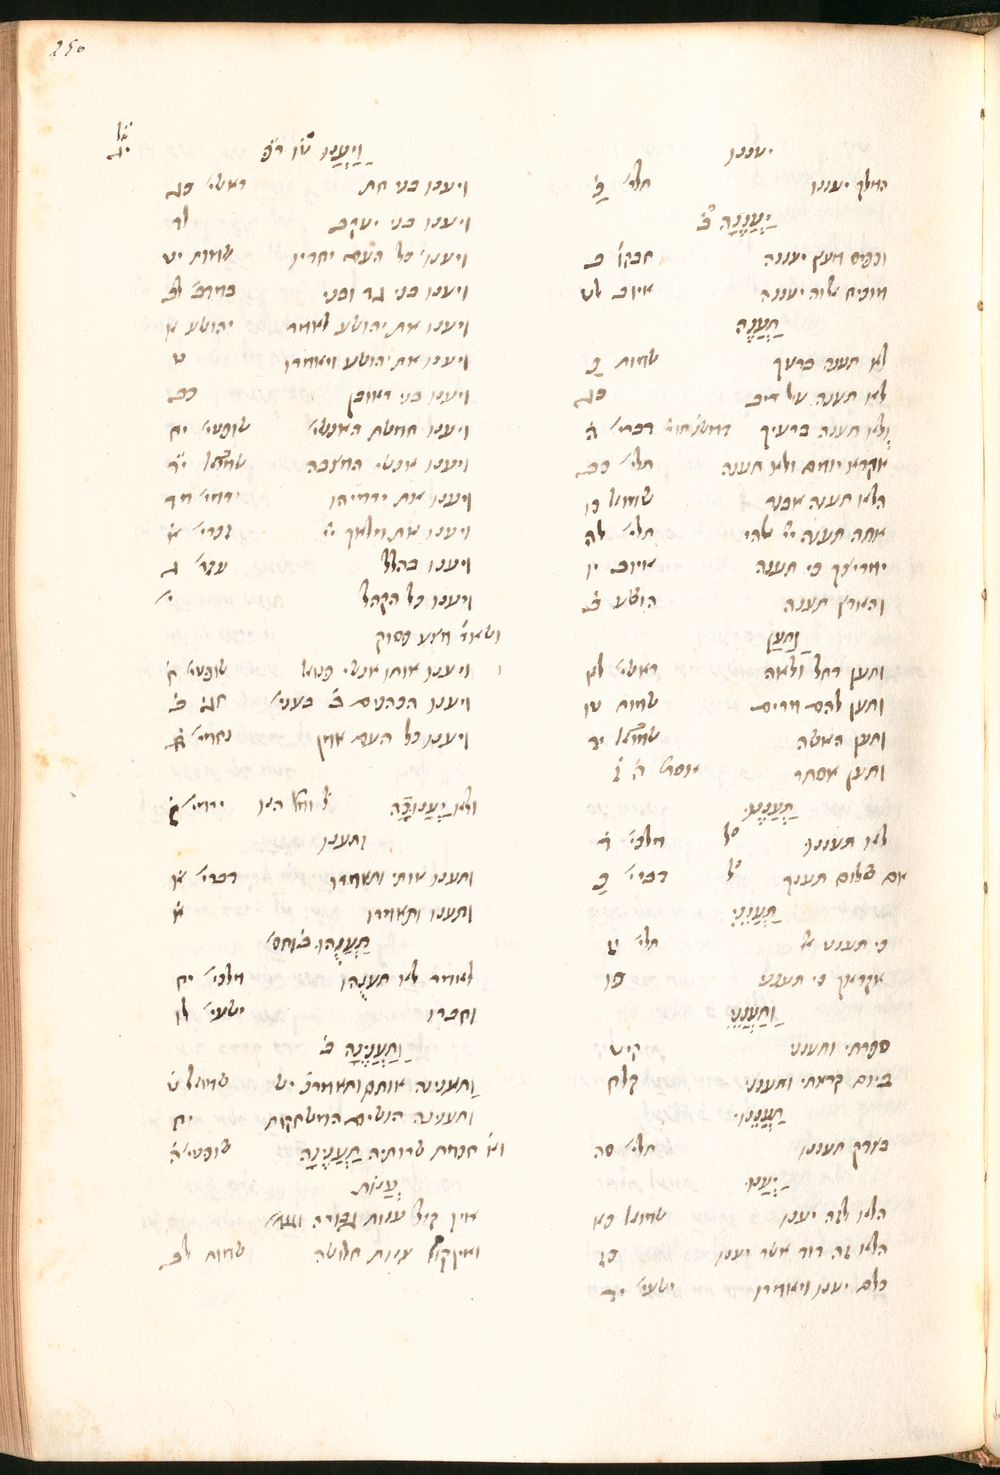 250
יעננו
המלך יעננו תלי׳ כ
יַעֲנֶנָּה ב׳
וכפיס מעץ יעננה חבקו׳ ב
מוכיח אלוה יעננה איוב לט
תַעֲנֶה
לא תענה ברעך שמות כ
לא תענה על ריב כג
ולא תענה ברעיך דברי׳ ה
אקרא יומם ולא תענה תלי׳ כב
הלא תענה אבנר שמואל כו
אתה תענה יי׳ אלהי תלי׳ לח
ימריצך כי תענה איוב יו
והארץ תענה הושע ב
וַתַּעַן
ותען רחל ולאה ראשי׳ לא
ותען להם מרים שמות טו
ותען האשה יד
ותען אסתר אסתר ה ז
תַעֲנֶנּוּ
לא תעננו מלכי׳ ד
אם שלום תענך דברי׳ כ
תַעֲנֵנִי
כי תענני אל תלי׳ יז
אקראך כי תענני פו
וַתַּעֲנֵנִי
ספרתי ותענני קיט
ביום קראתי ותענני קלח
תַּעֲנֵנוּ
בצדק תעננו תלי׳ סה
יַעֲנוּ
הלא לזה יענו שמואל כא
הלא זה דוד אשר יענו כט
כלם יענו ויאמרו ישעי׳ יד
וַיַּעֲנוּ
ויענו בני חת ראשי׳ כג
ויענו בני יעקב לד
ויענו כל העם יחדיו שמות יט
ויענו בני גד ובני במדב׳ לב
ויענו את יהושע לאמר יהושע א
ויענו את יהושע ויאמרו ט
ויענו בני ראובן כב
ויענו חמשת האנשי׳ שופטי׳ יח
ויענו אנשי המצבה יד
ויענו את ירמיהו ירמי׳ מד
ויענו את מלאך יי׳ זכרי׳ א
ויענו בהלל עזר׳ ג
ויענו כל הקהל י׳
ושאר׳ מצע פסוק
ויענו אותו אנשי פנואל שופטי׳ ח
ויענו הכהנים ב׳ בעני׳ חגי ב
ויענו כל העם אמן נחמי׳ ח
ולא יַעֲנוּכָה ירמי׳ ז
ותענו
ותענו אותי ותאמרו דברי׳ א
ותענו ותאמרו א
תַעֲנֻהוּ
לאמר לא תענֻהו מלכי׳ יח
וחברו ישעי׳ לו
וַתַּעֲנֶינָה ב׳
ותענינה אותם ותאמרנ׳ יש שמואל ט
ותענינה הנשים המשחקות יח
וא׳ חכמת שרותיה תַּעֲנֶינָּה שופטי׳ ה
עֲנוֹת
אין קול ענות גבורה
ואין קול ענות חלושה שמות לב